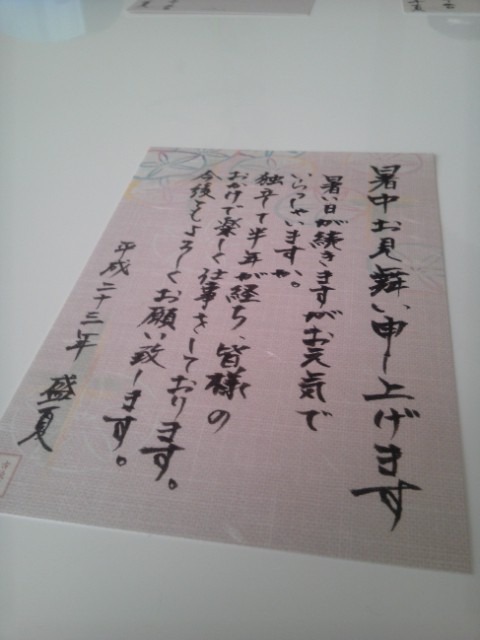 暑中お見舞い申し上げます
暑い日が続きますがお元気で
いらっしゃいますか。
独立して半年が経ち、皆様の
おかげで楽しく仕事をしております。
今後ともよろしくお願い致します。
平成二十三年 盛夏